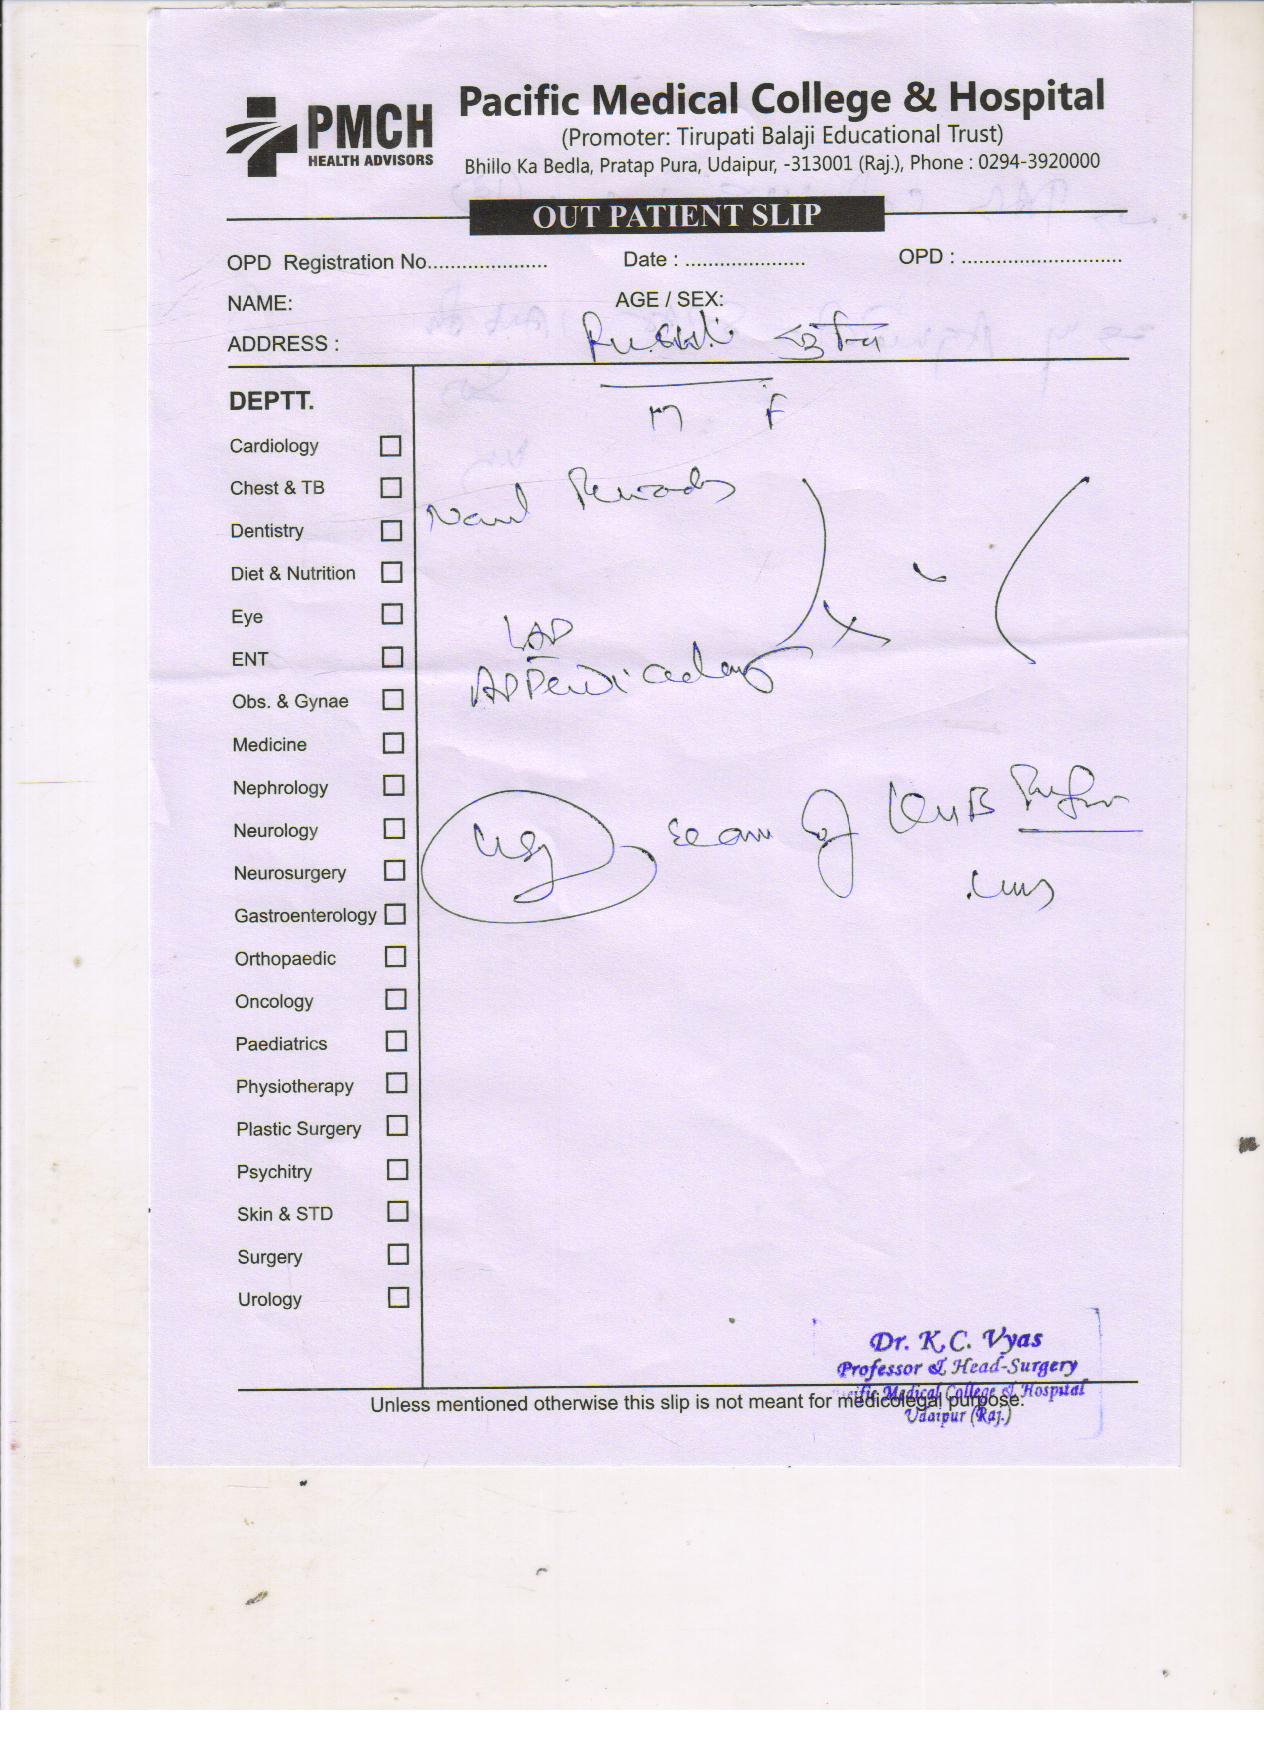 PMCH
HEALTH ADVISORS
Pacific Medical College & Hospital
(Promoter: Tirupati Balaji Educational Trust)
Bhillo Ka Bedla, Pratap Pura, Udaipur, -313001 (Raj.), Phone : 0294-3920000
OUT PATIENT SLIP
OPD Registration No..................... Date : ..................... OPD : ............................
NAME: AGE / SEX:
ADDRESS :
DEPTT.
M F
Cardiology
Chest & TB
Dentistry
Diet & Nutrition
Eye
ENT
LAP
Obs. & Gynae
Medicine
Nephrology
Neurology
USG scan of KUB
Neurosurgery
Gastroenterology
Orthopaedic
Oncology
Paediatrics
Physiotherapy
Plastic Surgery
Psychitry
Skin & STD
Surgery
Urology
Dr. K.C. Vyas
Professor & Head-Surgery
Pacific Medical College & Hospital
Udaipur (Raj.)
Unless mentioned otherwise this slip is not meant for medicolegal purpose.